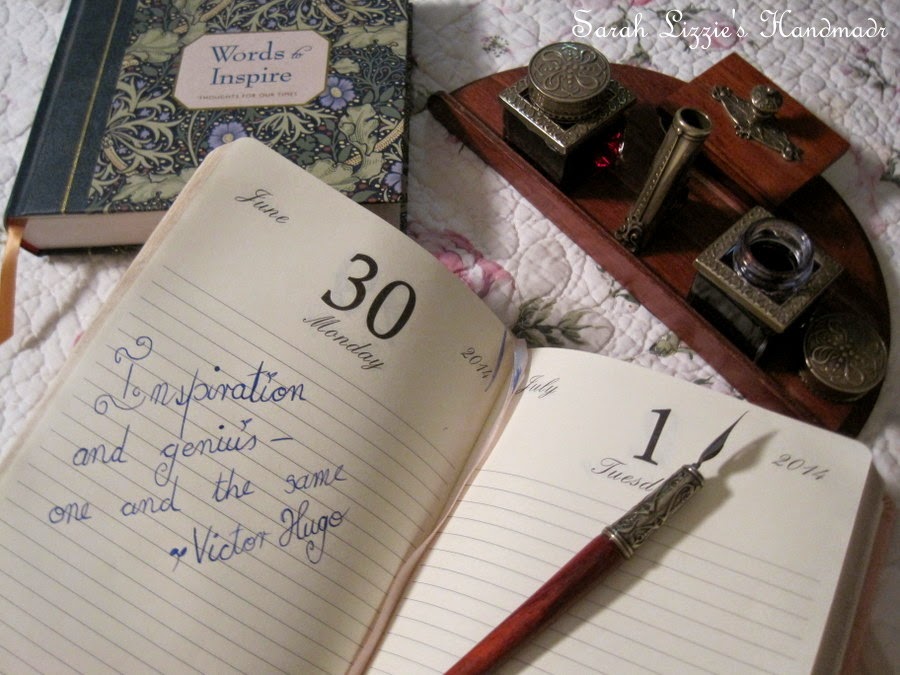 Sarah Lizzie's Handmadr
Words to
Inspire
THOUGHTS FOR OUR TIMES
June
30
Monday
2014
Inspiration
and genius–
one and the same
~Victor Hugo
July
1
Tuesd
2014